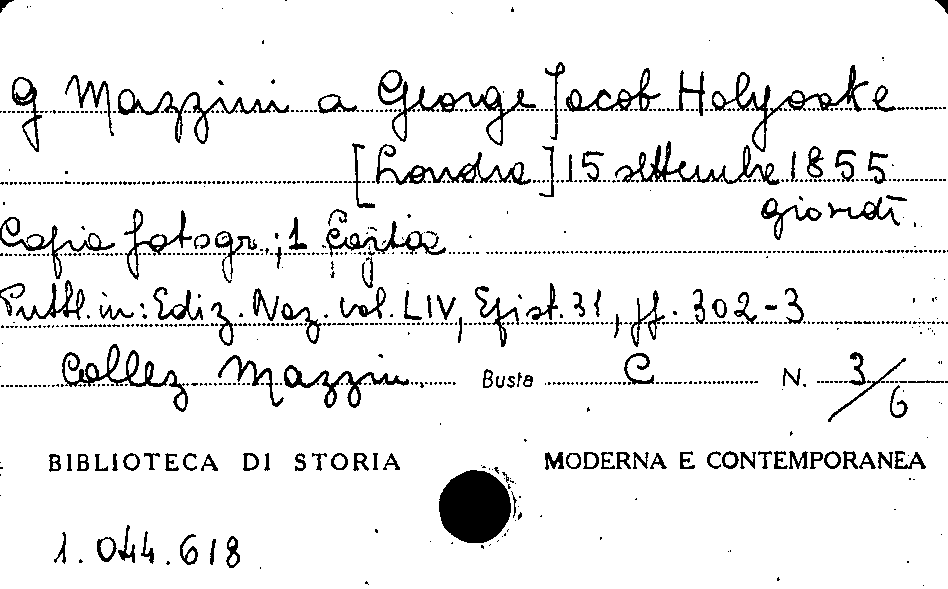 G Mazzini a George Jacob Holyoake
[Londra] 15 settembre 1855
giovedì.
Copia fotogr.; 1 Carta
Pubbl. in: Ediz. Naz. vol. LIV, Epist. 31, pp. 302-3
Collez Mazzin. Busta C N. 3/6
BIBLIOTECA DI STORIA MODERNA E CONTEMPORANEA
1.044.618